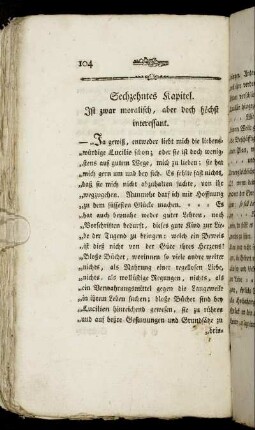 104
Sechzehntes Kapitel.
Ist zwar moralisch, aber doch höchst
interessant.
— Ja gewiß, entweder liebt mich die liebens-
würdige Lucilie schon; oder sie ist doch wenig-
stens auf gutem Wege, mich zu lieben; sie hat
mich gern um und bey sich. Es fehlte fast nichts,
daß sie mich nicht abzuhalten suchte, von ihr
wegzugehen. Nunmehr darf ich mir Hoffnung
zu dem süssesten Glücke machen. . . . Es
hat auch beynahe weder guter Lehren, noch
Vorschriften bedurft, dieses gute Kind zur Lie-
be der Tugend zu bringen: welch ein Beweis
ist dieß nicht von der Güte ihres Herzens!
Bloße Bücher, worinnen so viele andre weiter
nichts, als Nahrung einer regellosen Liebe,
nichts, als wollüstige Regungen, nichts, als
ein Verwahrungsmittel gegen die Langeweile
in ihrem Leben suchen; bloße Bücher sind bey
Lucilien hinreichend gewesen, sie zu rühren
und auf beßre Gesinnungen und Grundsätze zu
brin-